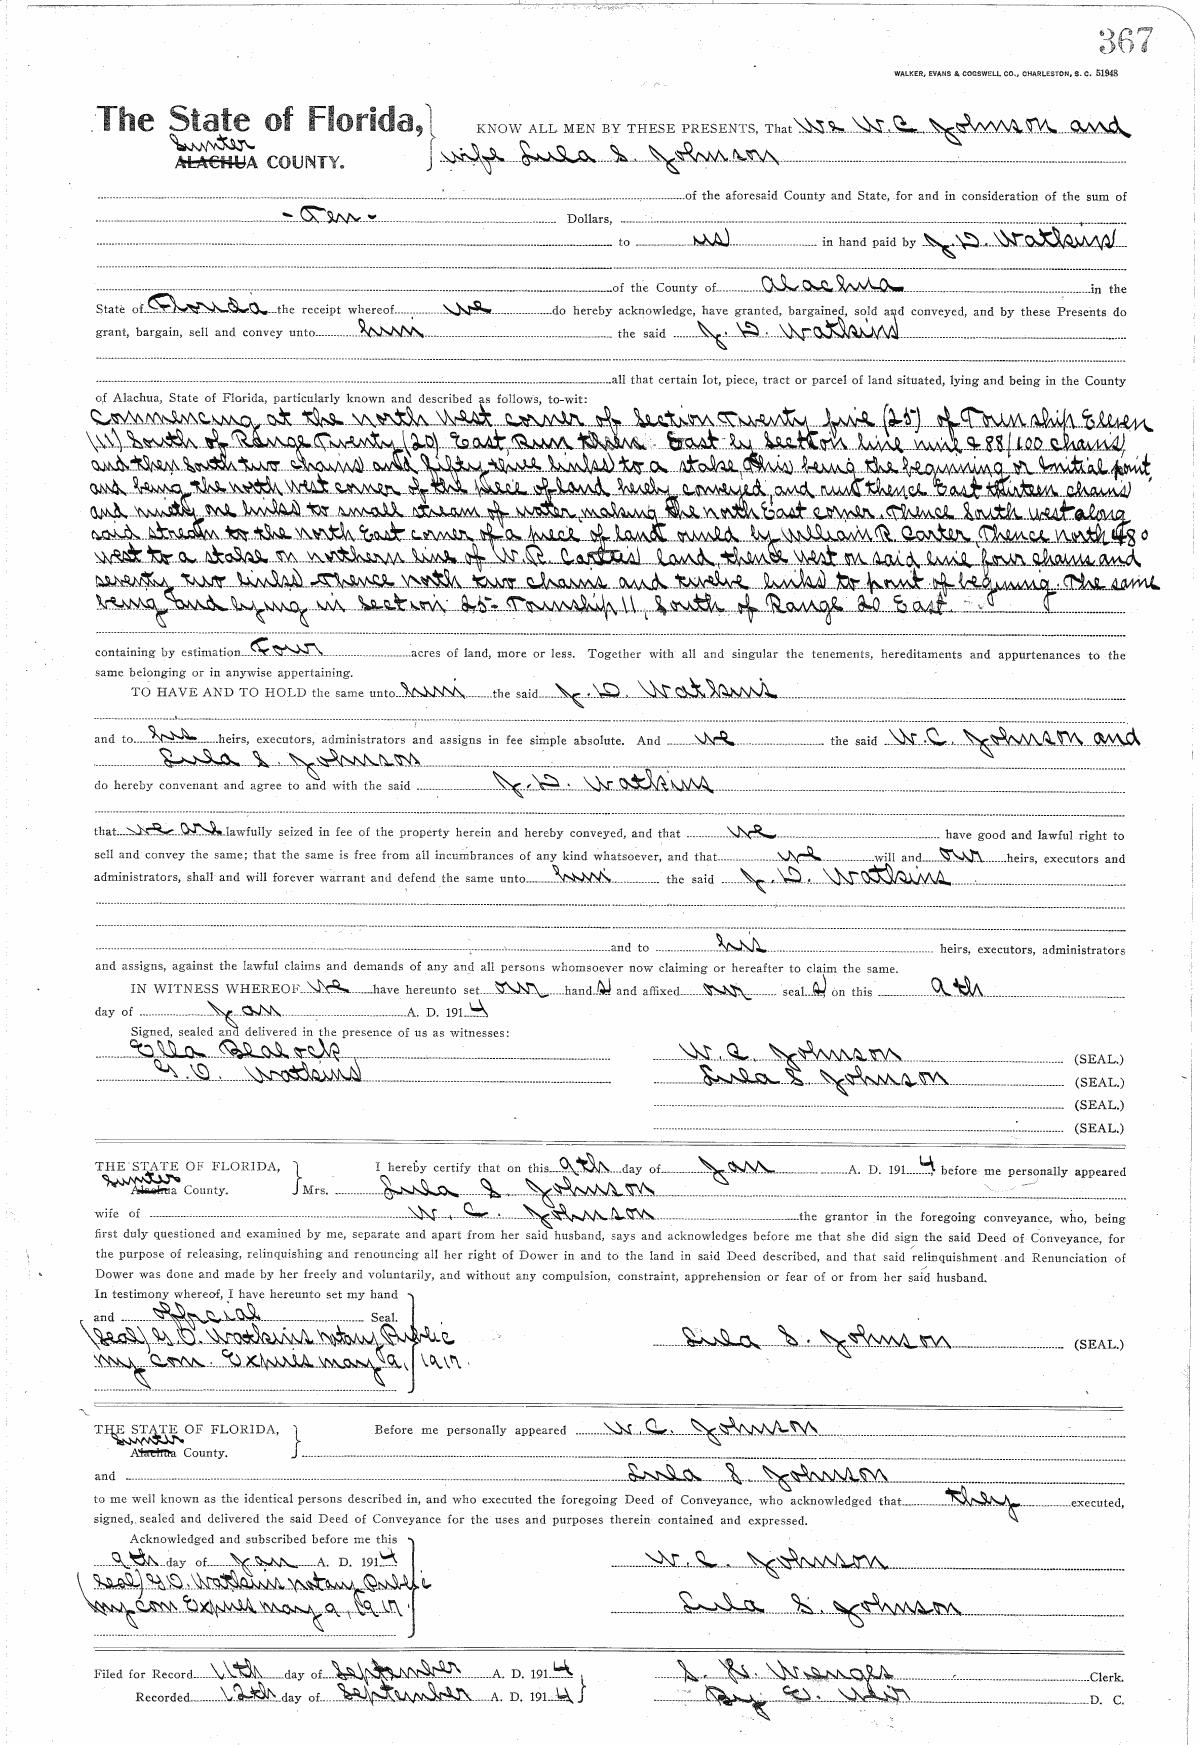 367
WALKER, EVANS & COGSWELL CO., CHARLESTON, S. C. 51948
The State of Florida, KNOW ALL MEN BY THESE PRESENTS, That We W.C. Johnson and
Sumter
ALACHUA COUNTY. wife Lula S. Johnson
of the aforesaid County and State, for and in consideration of the sum of
- Ten - Dollars,
to us in hand paid by J.D. Watkins
of the County of Alachua in the
State of Florida the receipt whereof we do hereby acknowledge, have granted, bargained, sold and conveyed, and by these Presents do
grant, bargain, sell and convey unto him the said J. D. Watkins
all that certain lot, piece, tract or parcel of land situated, lying and being in the County
of Alachua, State of Florida, particularly known and described as follows, to-wit:
Commencing at the north west corner of Section Twenty five (25) of Township Eleven
(11) South of Range Twenty (20) East, Run then East by section line nine & 88/100 chains,
and then South two chains and fifty three links to a stake, this being the beginning or Initial point,
and being the north west corner of the piece of land hereby conveyed, and run thence East thirteen chains
and ninety one links to small stream of water, making the north East corner. Thence South west along
said stream to the north East corner of a piece of land owned by William R. Carter, Thence north 48°
west to a stake on northern line of W.R. Carters land, thence west on said line four chains and
seventy two links Thence north two chains and twelve links to point of begining. The same
being and lying in Section 25- Township 11, South of Range 20 East.
containing by estimation Four acres of land, more or less. Together with all and singular the tenements, hereditaments and appurtenances to the
same belonging or in anywise appertaining.
TO HAVE AND TO HOLD the same unto him the said J. D. Watkins
and to his heirs, executors, administrators and assigns in fee simple absolute. And we the said W.C. Johnson and
Lula S. Johnson
do hereby convenant and agree to and with the said J. D. Watkins
that we are lawfully seized in fee of the property herein and hereby conveyed, and that we have good and lawful right to
sell and convey the same; that the same is free from all incumbrances of any kind whatsoever, and that we will and our heirs, executors and
administrators, shall and will forever warrant and defend the same unto him the said J. D. Watkins
and to his heirs, executors, administrators
and assigns, against the lawful claims and demands of any and all persons whomsoever now claiming or hereafter to claim the same.
IN WITNESS WHEREOF we have hereunto set our hand s and affixed our seal s on this 9th
day of Jan A. D. 1914
Signed, sealed and delivered in the presence of us as witnesses:
Ella Bealock W. C. Johnson (SEAL.)
G. O. Watkins Lula S. Johnson (SEAL.)
(SEAL.)
(SEAL.)
THE STATE OF FLORIDA, I hereby certify that on this 9th day of Jan A. D. 1914 before me personally appeared
Sumter
Alachua County. Mrs. Lula S. Johnson
wife of W. C. Johnson the grantor in the foregoing conveyance, who, being
first duly questioned and examined by me, separate and apart from her said husband, says and acknowledges before me that she did sign the said Deed of Conveyance, for
the purpose of releasing, relinquishing and renouncing all her right of Dower in and to the land in said Deed described, and that said relinquishment and Renunciation of
Dower was done and made by her freely and voluntarily, and without any compulsion, constraint, apprehension or fear of or from her said husband.
In testimony whereof, I have hereunto set my hand
and official Seal.
(Seal) G.O. Watkins notary Public Lula S. Johnson (SEAL.)
my com. Expires may 9, 1917.
THE STATE OF FLORIDA, Before me personally appeared W. C. Johnson
Sumter
Alachua County.
and Lula S. Johnson
to me well known as the identical persons described in, and who executed the foregoing Deed of Conveyance, who acknowledged that they executed,
signed, sealed and delivered the said Deed of Conveyance for the uses and purposes therein contained and expressed.
Acknowledged and subscribed before me this
9th day of Jan A. D. 1914 W. C. Johnson
(Seal) G.O. Watkins notary Public
my com Expires may 9, 1917. Lula S. Johnson
Filed for Record 11th day of September A. D. 1914 S. H. Wienges Clerk.
Recorded 12th day of September A. D. 1914 By E. Weir D. C.